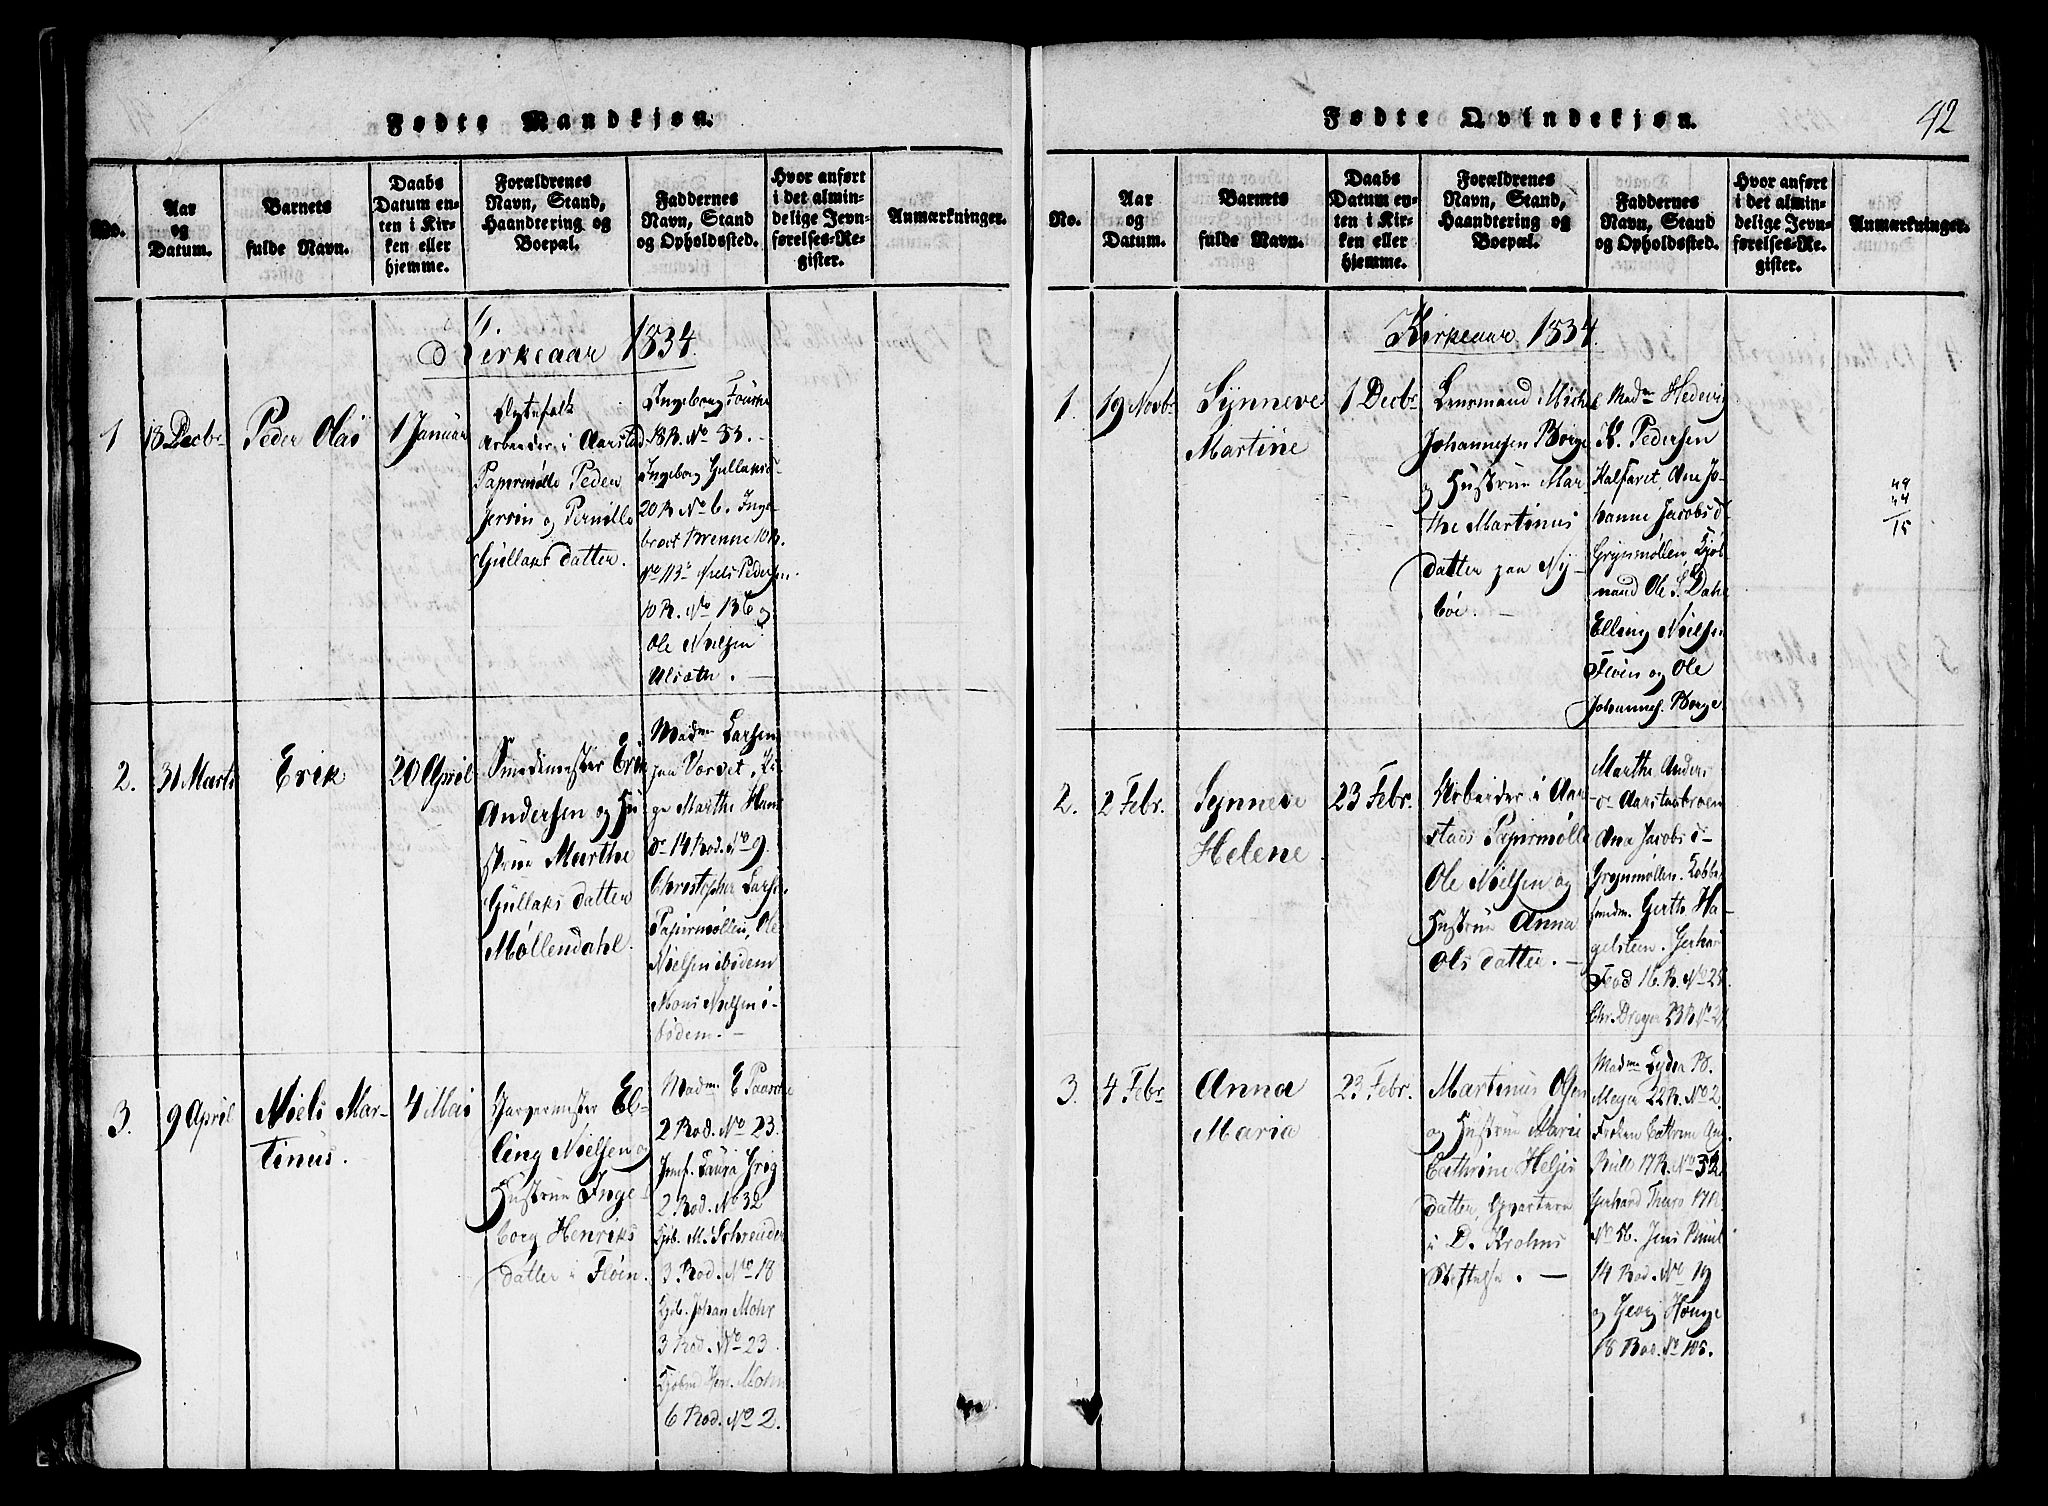 Fødte Mandkjøn.
No.
Aar
og
Datum.
Barnets
fulde Navn.
Daabs
Datum en-
ten i Kir-
ken eller
hjemme.
Forældrenes
Navn, Stand,
Haandtering og
Boepæl.
Faddernes
Navn, Stand
og Opholdssted.
Hvor anført
i det almin-
delige Jevn-
førelses-Re-
gister.
Anmærkninger.
Kirkeaar 1834.
1
18 Decbr
Peder Olai
1 Januar
Ægtefolk
Arbeider i Aarstad
Papirmølle Peder
Jersin og Pernille
Gullaks datter.
Ingeborg
18 R. No 83.
Ingeborg Gullaksd
20 R No 6. Inge-
brect Brenne 10 R.
No 113 Niels Pedersen
10 R. No 136 og
Ole Nielsen
Ulsætn.
2.
31 Marts
Erik
20 April
Smedemester Erik
Andersen og Hu-
strue Marthe
Gullaks datter
Møllendahl.
Madm Larsen
paa Vorvet, Pi-
ge Marthe Hans
dr 14 Rod. No 9
Christopher Larsen
Papirmøllen, Ole
Nielsen ibidem
Mons Nielsen i-
bidem.
3.
9 April
Niels Mar-
tinus.
4 Mai
Garvermester El-
ling Nielsen og
Hustrue Inge-
borg Henriks
datter i Fløin.
Madm E Paasche
2 Rod. No 23.
Jomf. Laura Grieg
2 Rod. No 32
Kjøb. M. Schreuder
3 Rod. No 18
Kjøb. Johan Mohr
3 Rod. No 23.
Kjøbmd Herm. Mohn
6 Rod. No 2.
Fødte Qvindekjøn.
42
No.
Aar
og
Datum.
Barnets
fulde Navn.
Daabs
Datum en-
ten i Kir-
ken eller
hjemme.
Forældrenes
Navn, Stand,
Haandtering og
Boepæl.
Faddernes
Navn, Stand
og Opholdssted.
Hvor anført
i det almin-
delige Jevn-
førelses-Re-
gister.
Anmærkninger.
Kirkeaar 1834.
1.
19 Novbr
Synneve
Martine
1 Decbr
Lensmand Michel
Johannesen Borge
og Hustrue Mar-
the Martinus
datter paa Ny-
bøe.
Madm Hedevig
K. Pedersen
Kalfaret, Ane Jo-
hanne Jacobsd
Grynmøllen Kjøb-
mand Ole S. Dahl
Elling Nielsen
Fløin og Ole
Johannes. Borge
2.
2 Febr.
Synneve
Helene
23 Febr.
Arbeider i Aar-
stads Papirmølle
Ole Nielsen og
Hustrue Anna
Ols datter.
Marthe Anders
dr Aarstadbroen
Ana Jacobs d-
Grynmøllen. Kobber-
smdm. Gerth Ha-
gelsteen. Gerhar
Frod 16. R. No 25
Chr. Dreyer 23 R No 21
3.
4 Febr
Anna
Maria
23 Febr.
Martinus Olsen
og Hustrue Marie
Cathrine Heljes
datter, Qvarteer
i D. Krohns
Stiftelse.
Madme Lyder B.
Meyer 22 R. No 2.
Frøken Cathrine An.
Bull 17 R. No 32
Gerhard 17 R.
No 56. Jens
14 Rod. No 19
og Georg
18 Rod. No 105.